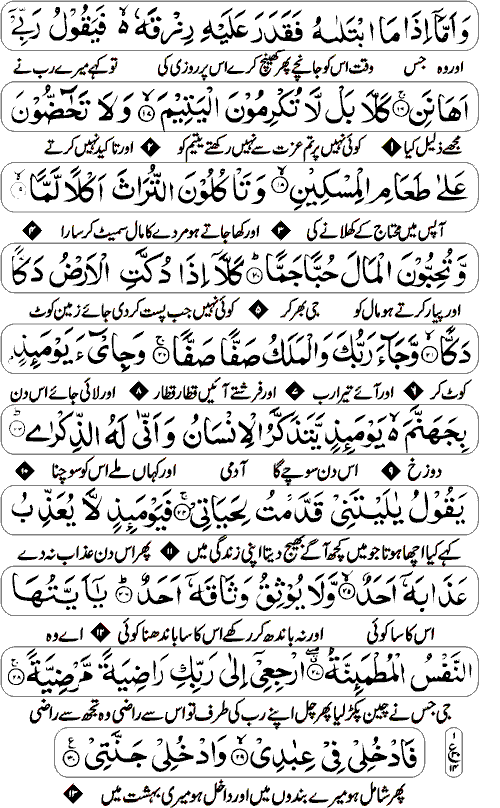 وَاَمَّاۤ اِذَا مَا ابْتَلٰىهُ فَقَدَرَ عَلَيْهِ رِزْقَهٗ ۙ فَيَقُوْلُ رَبِّيْۤ
اور وہ جس وقت اس کو جانچے پھر کھینچ کرے اس پر روزی کی تو کہے میرے رب نے
اَهَانَنِ ۚ كَلَّا بَلْ لَّا تُكْرِمُوْنَ الْيَتِيْمَ ۙ وَلَا تَحٰٓضُّوْنَ
مجھے ذلیل کیا ۱ کوئی نہیں پر تم عزت سے نہیں رکھتے یتیم کو ۲ اور تاکید نہیں کرتے
عَلٰى طَعَامِ الْمِسْكِيْنِ ۙ وَتَاْكُلُوْنَ التُّرَاثَ اَكْلًا لَّمًّا ۙ
آپس میں محتاج کے کھلانے کی ۳ اور کھا جاتے ہو مردے کا مال سمیٹ کر سارا ۴
وَّتُحِبُّوْنَ الْمَالَ حُبًّا جَمًّا ؕ كَلَّاۤ اِذَا دُكَّتِ الْاَرْضُ دَكًّا
اور پیار کرتے ہو مال کو جی بھر کر ۵ کوئی نہیں جب پست کر دی جائے زمین کوٹ
دَكًّا ۙ وَّجَآءَ رَبُّكَ وَالْمَلَكُ صَفًّا صَفًّا ۚ وَجِايْٓءَ يَوْمَئِذٍۭ
کوٹ کر ۶ اور آئے تیرا رب ۷ اور فرشتے آئیں قطار قطار ۸ اور لائی جائے اس دن
بِجَهَنَّمَ ۙ يَوْمَئِذٍ يَّتَذَكَّرُ الْاِنْسَانُ وَاَنّٰى لَهُ الذِّكْرٰى ؕ
دوزخ ۹ اس دن سوچے گا آدمی اور کہاں ملے اس کو سوچنا ۱۰
يَقُوْلُ يٰلَيْتَنِيْ قَدَّمْتُ لِحَيَاتِيْ ۚ فَيَوْمَئِذٍ لَّا يُعَذِّبُ
کہے کیا اچھا ہوتا جو میں کچھ آگے بھیج دیتا اپنی زندگی میں ۱۱ پھر اس دن عذاب نہ دے
عَذَابَهٗۤ اَحَدٌ ۙ وَّلَا يُوْثِقُ وَثَاقَهٗۤ اَحَدٌ ؕ يٰۤاَيَّتُهَا
اس کا سا کوئی اور نہ باندھ کر رکھے اس کا سا باندھنا کوئی ۱۲ اے وہ
النَّفْسُ الْمُطْمَئِنَّةُ ۖ ارْجِعِيْۤ اِلٰى رَبِّكِ رَاضِيَةً مَّرْضِيَّةً ۚ
جی جس نے چین پکڑ لیا پھر چل اپنے رب کی طرف تو اس سے راضی وہ تجھ سے راضی
فَادْخُلِيْ فِيْ عِبٰدِيْ ۙ وَادْخُلِيْ جَنَّتِيْ
پھر شامل ہو میرے بندوں میں اور داخل ہو میری بہشت میں ۱۳